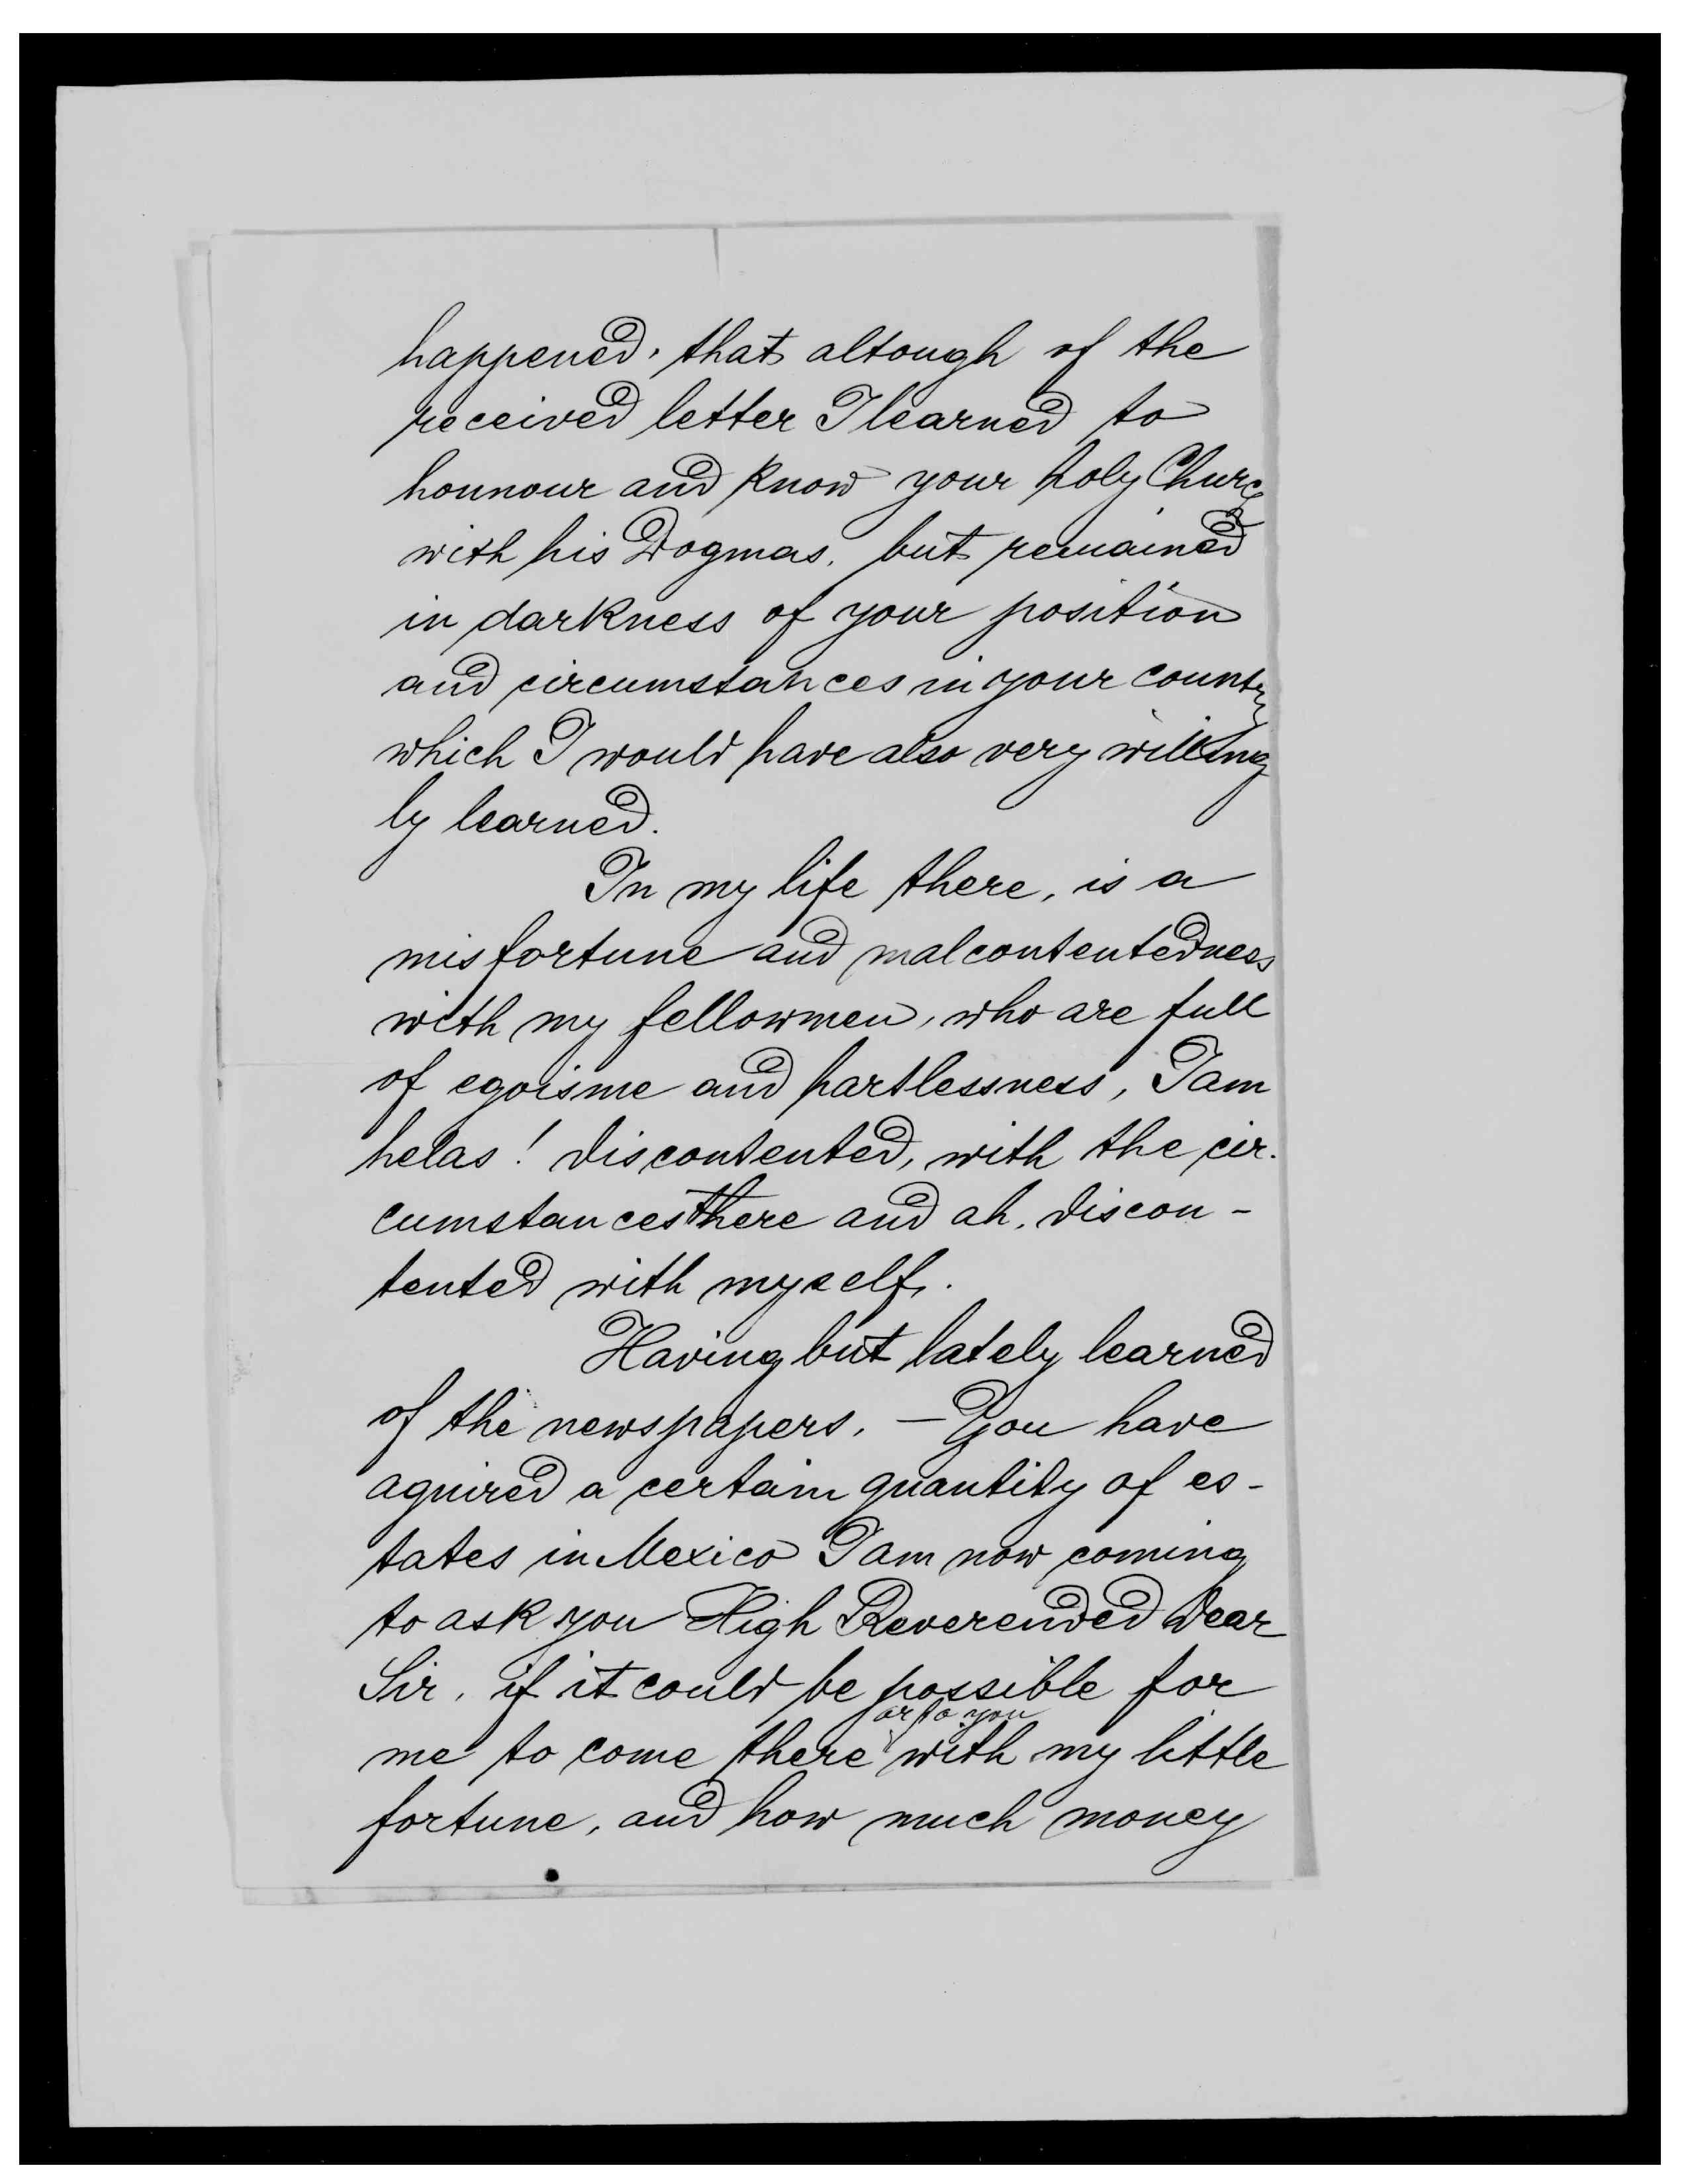 happened, that altough of the
received letter I learned to
honnour and know your holy Church
with his Dogmas, but remained
in darkness of your position
and circumstances in your country
which I would have also very willing
ly learned.
In my life there, is a
misfortune and malcontentedness
with my fellowmen, who are full
of egoisme and hartlessness, I am
helas! discontented, with the cir.
cumstances there and ah, discon-
tented with myself,.
Having but lately learned
of the newspapers, — You have
aquired a certain quantity of es-
tates in Mexico I am now coming
to ask you High Reverended Dear
Sir, if it could be possible for
or to you
me to come there with my little
fortune, and how much money